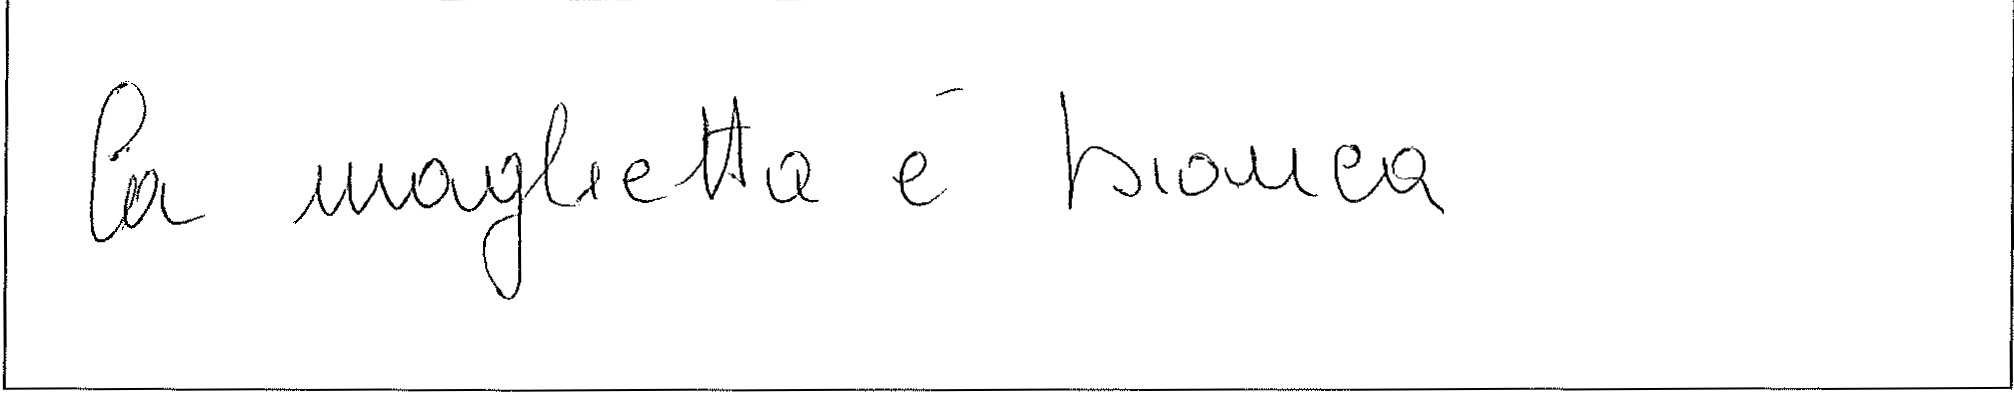 La maglietta é bianca